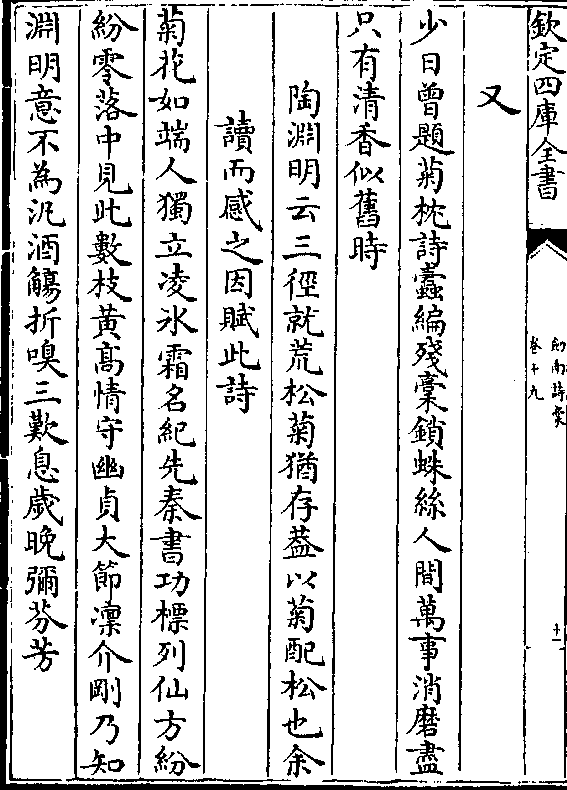 欽定四庫全書
劍南詩藁
卷十九
十一
又
少日曾題菊枕詩蠹編殘槀鎖蛛絲人間萬事消磨盡
只有清香似舊時
陶淵明云三徑就荒松菊猶存葢以菊配松也余
讀而感之因賦此詩
菊花如端人獨立凌冰霜名紀先秦書功標列仙方紛
紛零落中見此數枝黄髙情守幽貞大節凛介剛乃知
淵明意不為泛酒觴折嗅三歎息歲晚彌芬芳